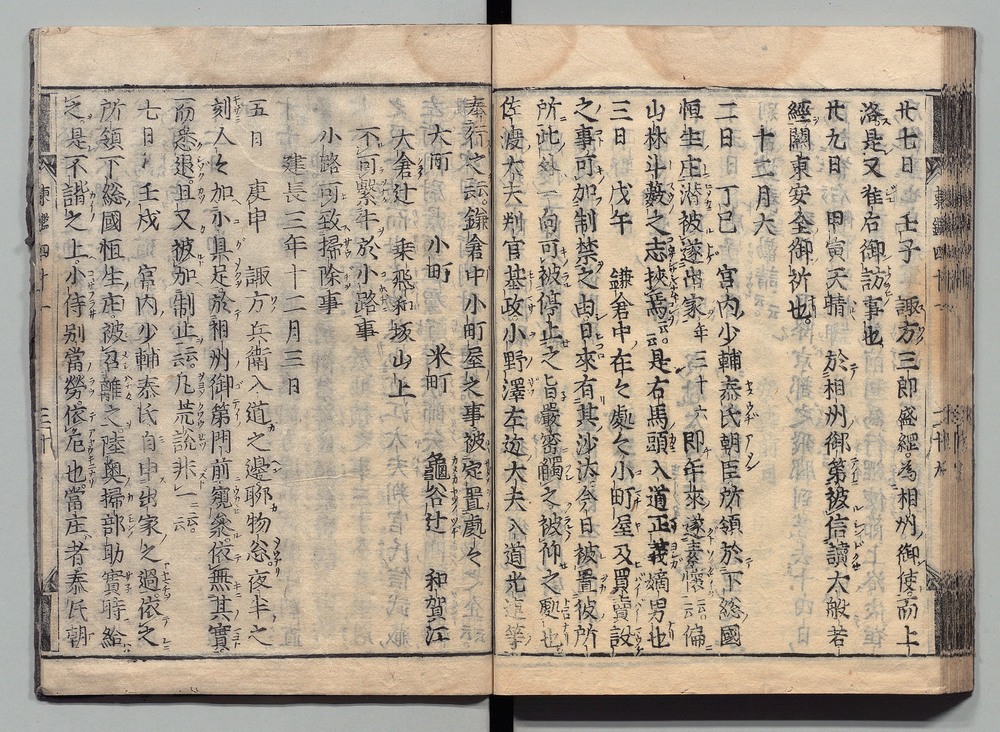 廿七日壬子 諏方三郎盛經為相州御使而上
洛是又在右御訪事也
廿九日 甲寅天晴 於相州御第被信讀大般若
經關東安全御祈也
十二月大
二日 丁巳 宮内少輔泰氏朝臣所領於下総國
恒生庄潜被遂出家年三十六即年來遂素懷云云偏
山林斗薮之志挾焉云云是右馬頭入道正義嫡男也
三日 戊午 鎌倉中在々處々小町屋及買賣設
之事可加制禁之由日來有其沙汰今日被置彼所
所此外一向可被停止之旨嚴密觸之被仰之處也
佐渡大夫判官基政小野澤左近大夫入道光蓮等
奉行之云云鎌倉中小町屋之事被定置處々
大町 小町 米町 龜谷辻 和賀江
大倉辻 氣飛和坂山上
不可繫牛於小路事
小路可致掃除事
建長三年十二月三日
五日 庚申 諏方兵衛入道之邊聊物忩夜半之
刻人々加小具足於相州御第門前窺參依無其實
而悉退且又被加制止云云凡荒說非一云云
七日 壬戌 宮内少輔泰氏自申出家之過依之
所領下総國恒生庄被召離之陸奥掃部助實時給
之是不諧之上小侍別當勞依危也當庄者泰氏朝
東鑑四十一